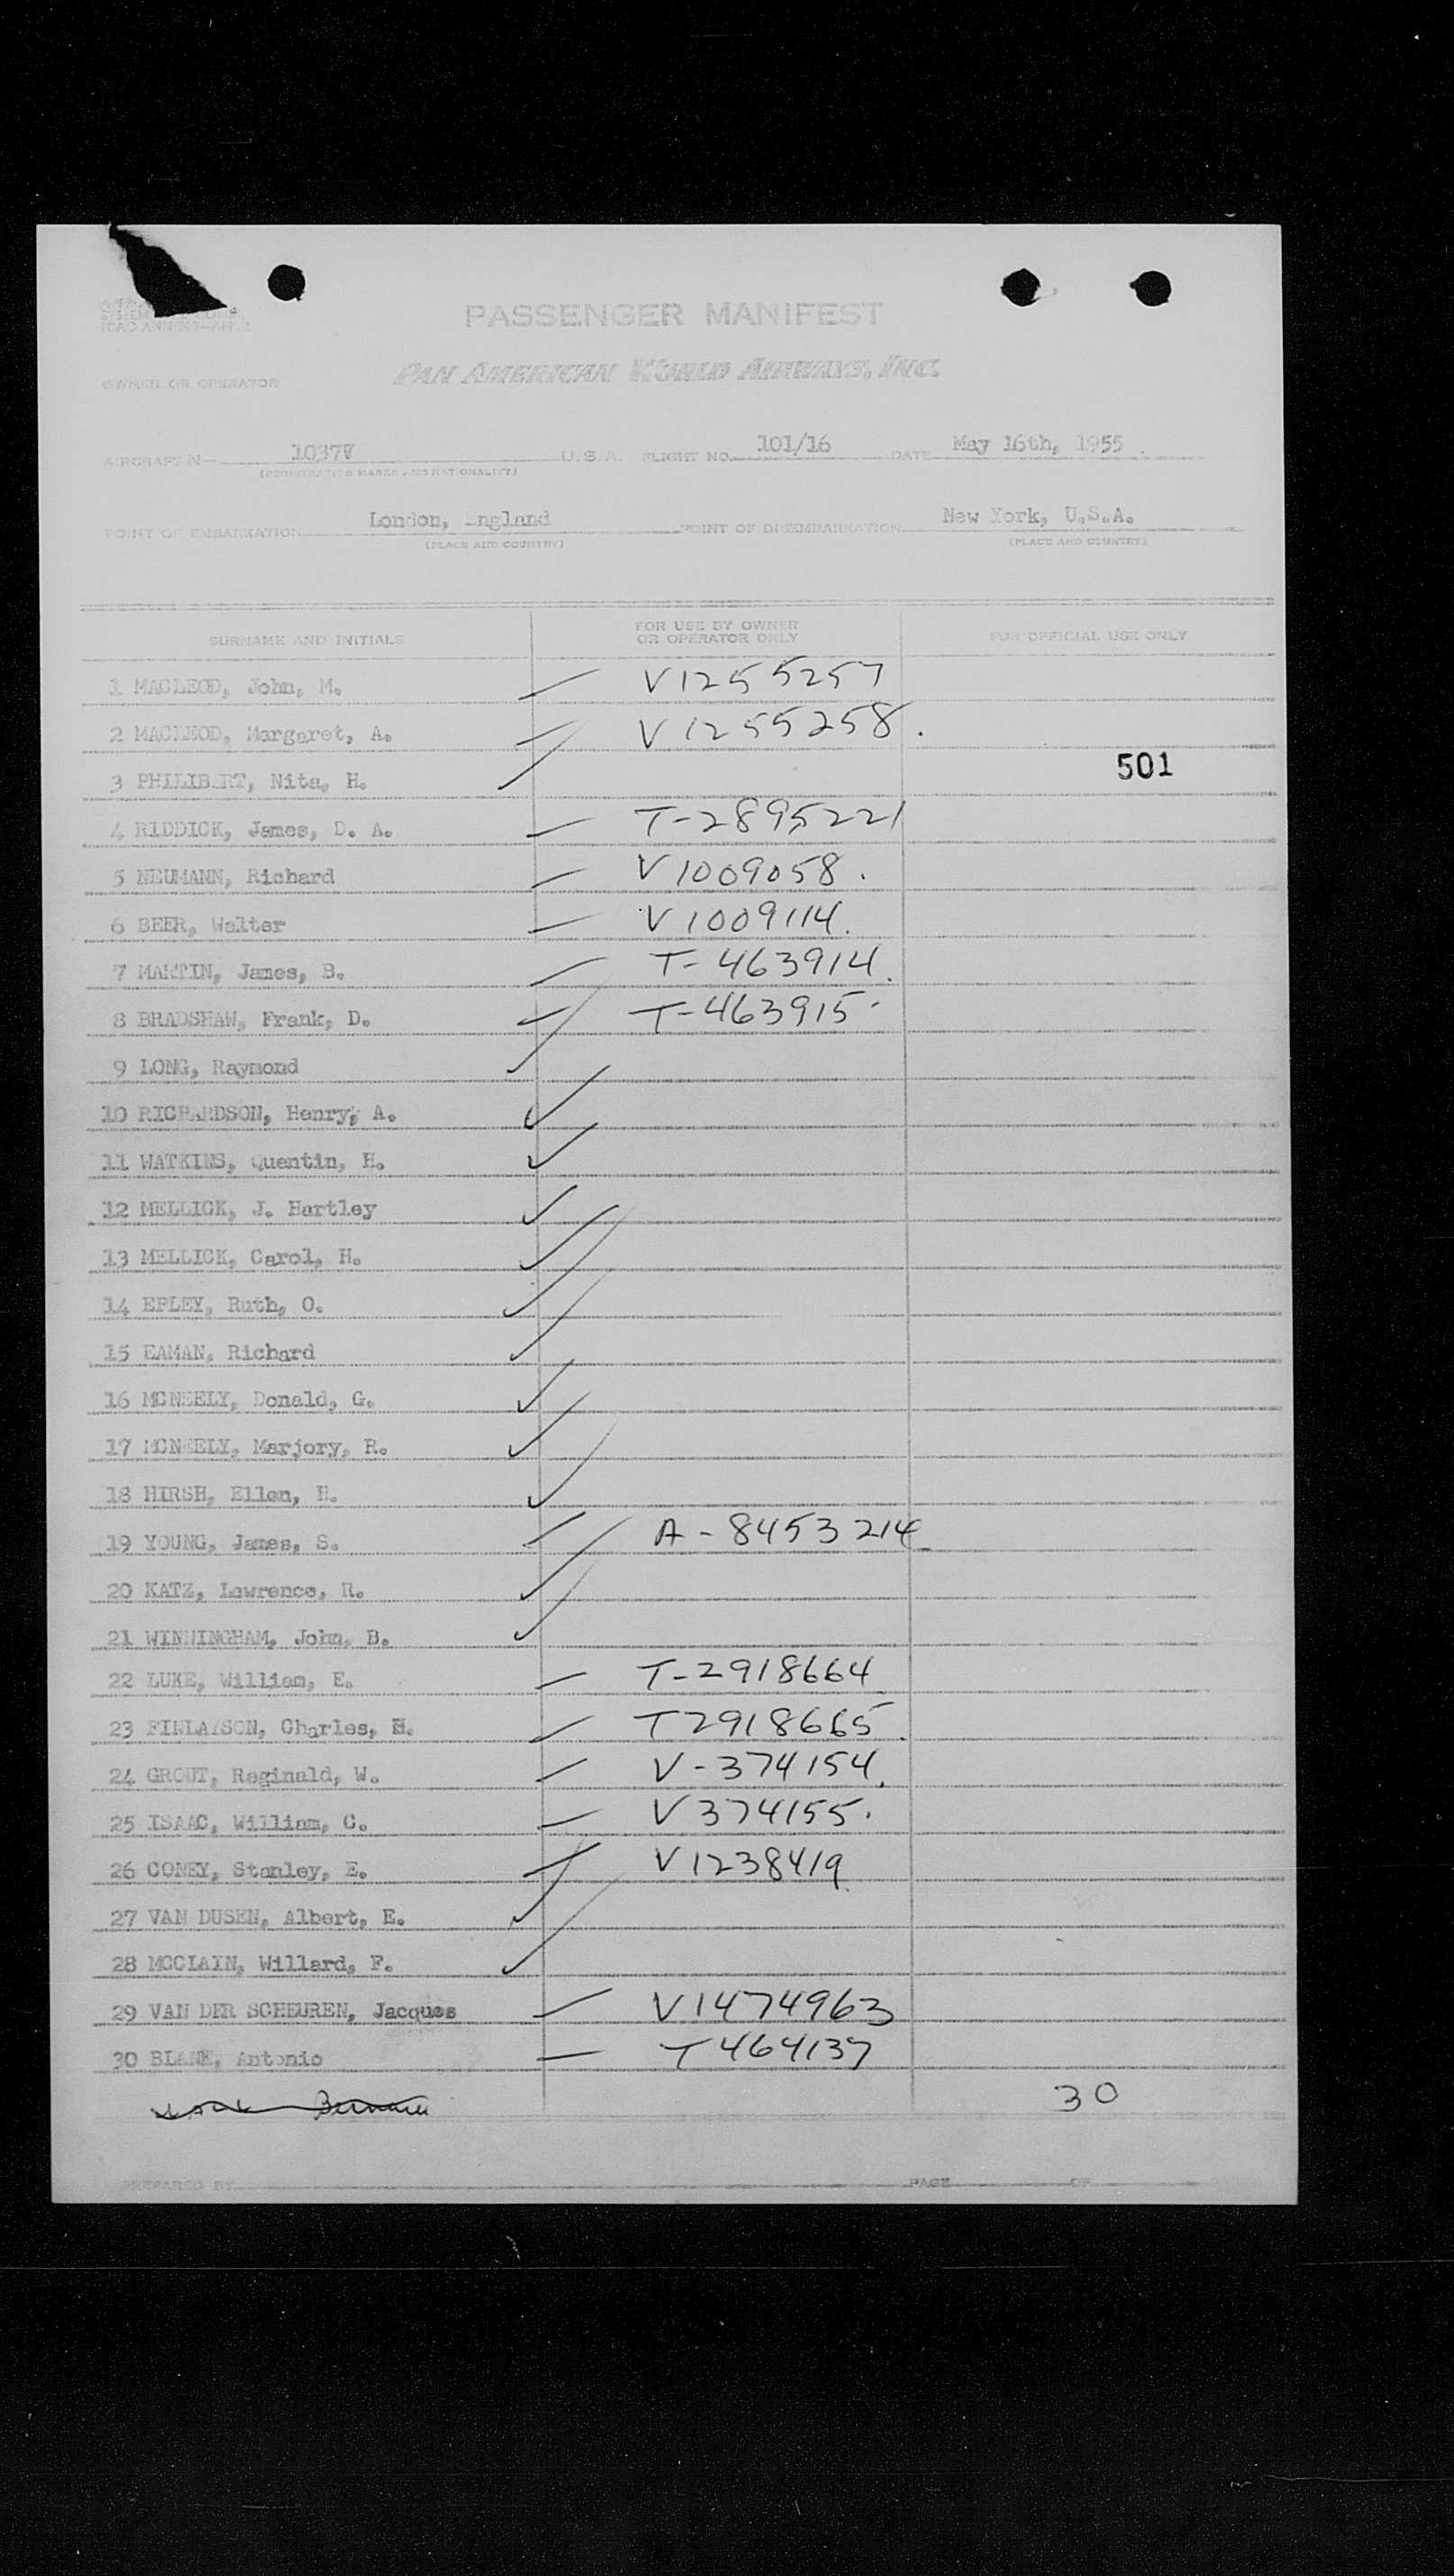 ICAO ANNEX 9—APP. 2
PASSENGER MANIFEST
OWNER OR OPERATOR PAN AMERICAN WORLD AIRWAYS, INC.
AIRCRAFT N— 1037V U.S.A. FLIGHT NO. 101/16 DATE May 16th, 1955
(REGISTRATION MARKS AND NATIONALITY)
POINT OF EMBARKATION London, England POINT OF DISEMBARKATION New York, U.S.A.
(PLACE AND COUNTRY) (PLACE AND COUNTRY)
SURNAME AND INITIALS FOR USE BY OWNER OR OPERATOR ONLY FOR OFFICIAL USE ONLY
1 MACLEOD, John, M. V1255257
2 MACLEOD, Margaret, A. V1255258.
3 PHILIBERT, Nita, H. 501
4 RIDDICK, James, D. A. T-2895221
5 NEUMANN, Richard V1009058.
6 BEER, Walter V1009114.
7 MARTIN, James, B. T-463914.
8 BRADSHAW, Frank, D. T-463915.
9 LONG, Raymond
10 RICHARDSON, Henry, A.
11 WATKINS, Quentin, H.
12 MELLICK, J. Hartley
13 MELLICK, Carol, H.
14 EPLEY, Ruth, O.
15 EAMAN, Richard
16 MCNEELY, Donald, G.
17 MCNEELY, Marjory, R.
18 HIRSH, Ellen, H.
19 YOUNG, James, S. A-8453214
20 KATZ, Lawrence, R.
21 WINNINGHAM, John, B.
22 LUKE, William, E. T-2918664
23 FINLAYSON, Charles, H. T2918665.
24 GROUT, Reginald, W. V-374154.
25 ISAAC, William, C. V374155.
26 CONEY, Stanley, E. V1238419
27 VAN DUSEN, Albert, E.
28 MCCLAIN, Willard, F.
29 VAN DER SCHEUREN, Jacques V1474963
30 BLANE, Antonio T464137
30
PREPARED BY PAGE OF